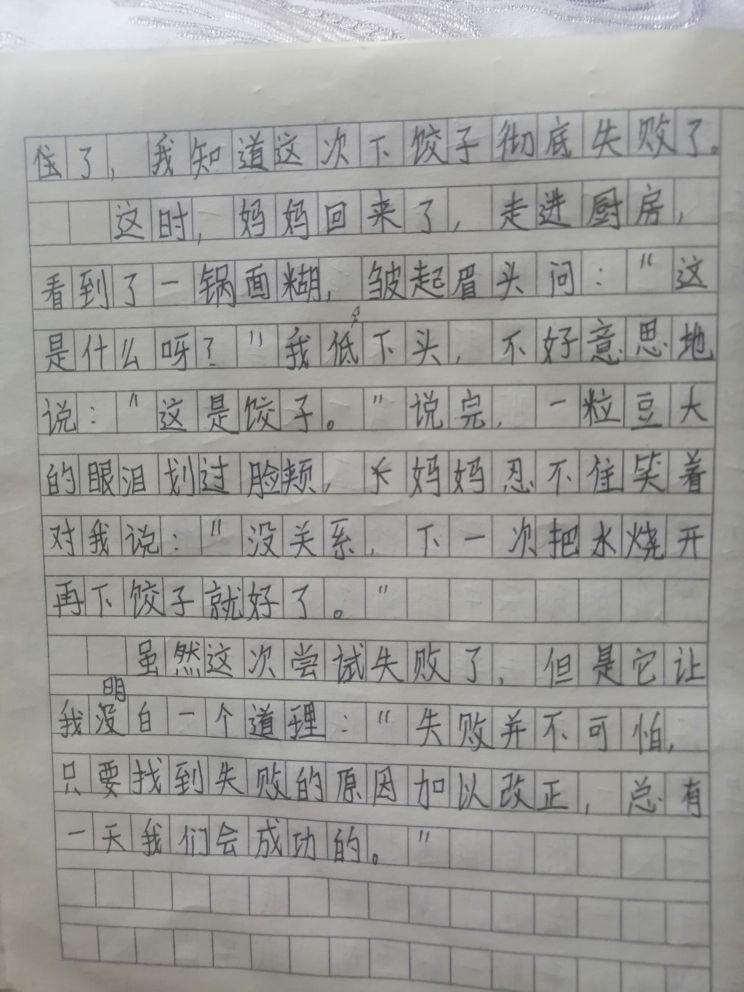 住了，我知道这次下饺子彻底失败了。
这时，妈妈回来了，走进厨房，
看到了一锅面糊，皱起眉头问：“这
是什么呀？”我低下头，不好意思地
说：“这是饺子。”说完，一粒豆大
的眼泪划过脸颊，妈妈忍不住笑着
对我说：“没关系，下一次把水烧开
再下饺子就好了。”
虽然这次尝试失败了，但是它让
我明白一个道理：“失败并不可怕，
只要找到失败的原因加以改正，总有
一天我们会成功的。”